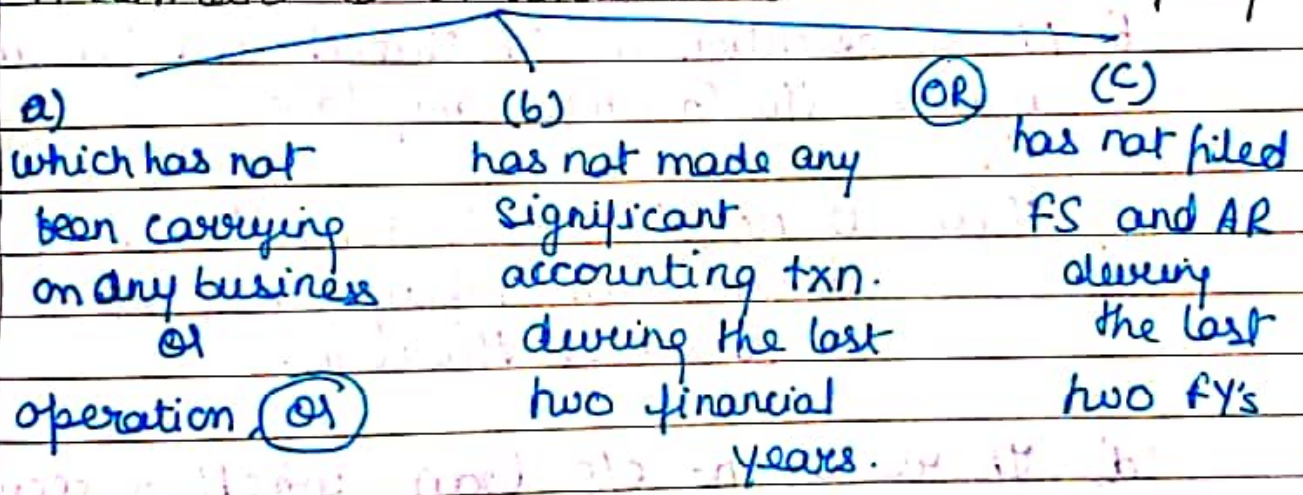 a)
which has not
been carrying
on any business
or
operation, or
(b)
has not made any
significant
accounting txn.
during the last
two financial
years.
OR
(C)
has not filed
FS and AR
during
the last
two FY's